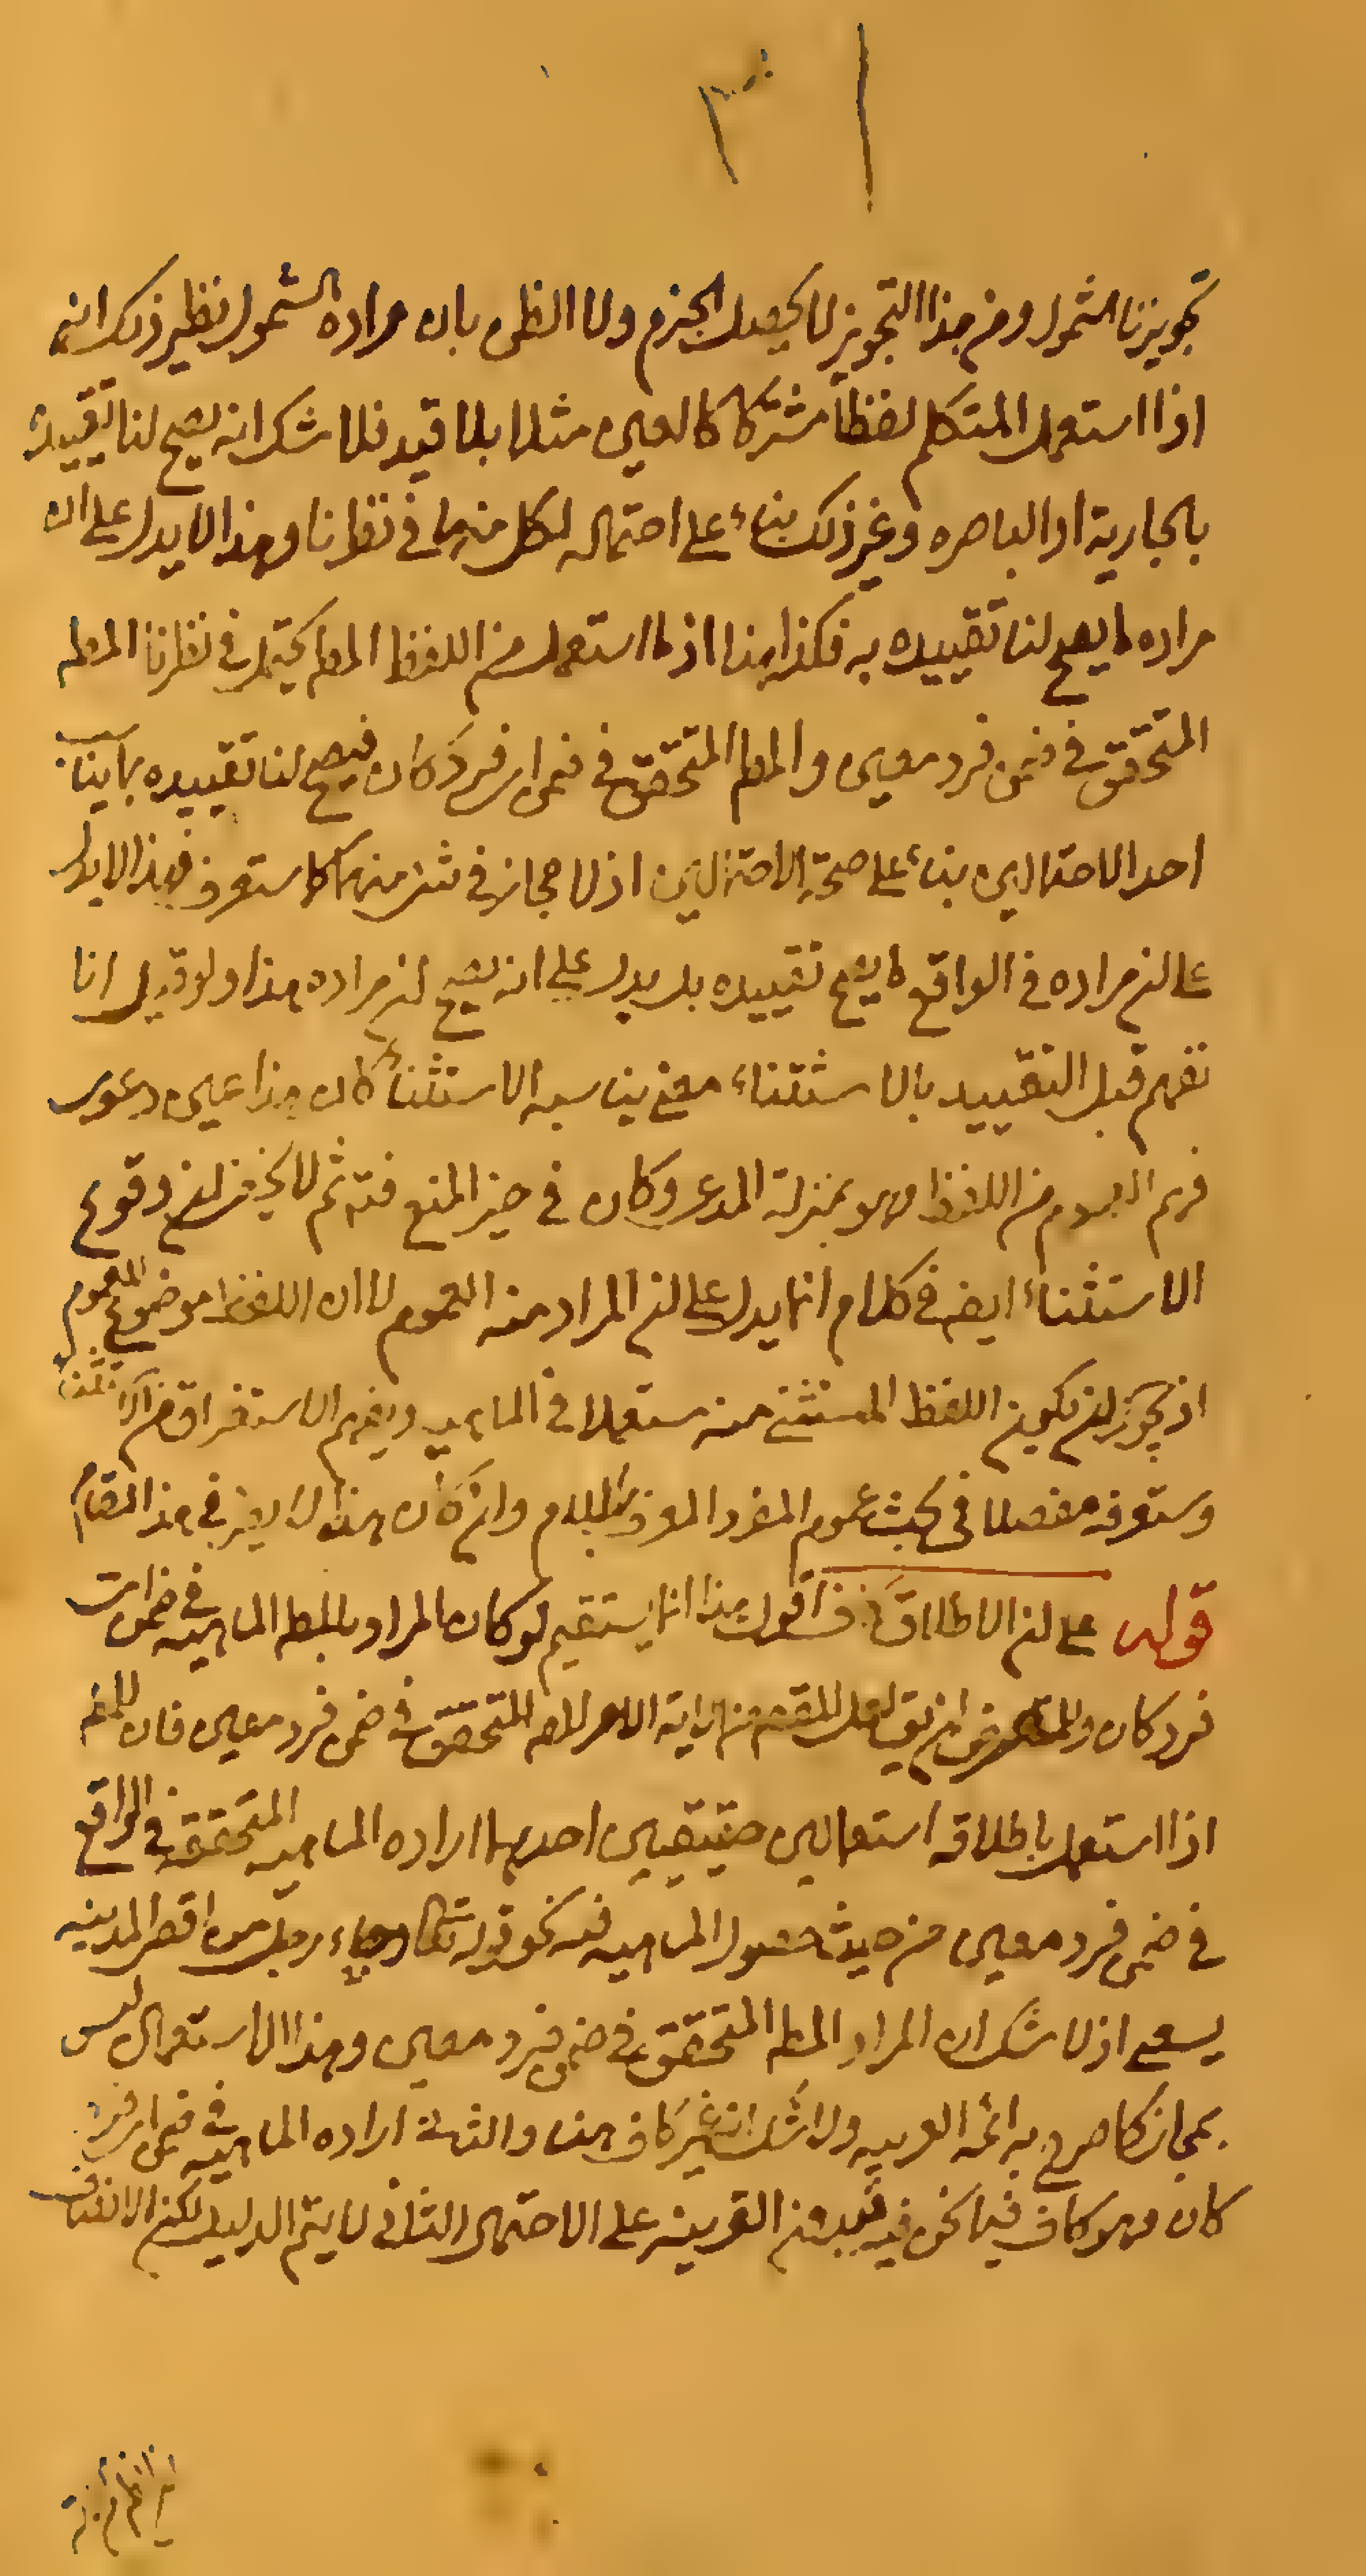 تجويزنا الشمول ومن هذا التجويز لا يحصل الجزم ولا الظن بان مراده الشمول نظير ذلك انه
اذا استعمل المتكلم لفظاً مشتركا كالعين مثلا بلا قيد فلا شك انه يصح لنا تقييده
بالجارية او الباصره وغير ذلك بناء على احتماله لكل منهما في نظرنا وهذا لا يدل على ان
مراده ما يصح لنا تقييده به فكذا هنا اذا استعمل اللفظ المط يحتمل في نظرنا المط
المتحقق في ضمن فرد معين والمط المتحقق في ضمن اى فرد كان فيصح لنا تقييده بما يناسب
احد الاحتمالين بناء على صحة الاحتمالين اذ لا مجاز في شئ منهما كما ستعرف فهذا لا يدل
على ان مراده في الواقع ما يصح تقييده بل يدل على انه يصح ان مراده هذا ولو قيل انا
نفهم قبل التقييد بالاستثناء معنى يناسبه الاستثناء كان هذا عين دعوى
فهم العموم من اللفظ وهو بمنزلة المدعى وكان في حيز المنع فتم ثم لا يخفى ان وقوع
الاستثناء ايض في كلام انما يدل على ان المراد منه العموم لا ان اللفظ موضوع للعموم
اذ يجوز ان يكون اللفظ المستثنى منه مستعملا في الماهيه ويفهم الاستغراق من الاستثناء
وستعرفه مفصلا في بحث عموم المفرد المعرف باللام وان كان هذا لا يضر في هذا المقام
قوله على ان الاطلاق كاف اقول هذا انما يستقيم لو كان المراد بالمط الماهيه في ضمن اى
فرد كان وللمعترض ان يق لعل المفهم من اية الامر المط المتحقق في ضمن فرد معين فان للمط
اذا استعمل باطلاقه استعمالين حقيقيين احدهما اراده الماهيه المتحققه في الواقع
في ضمن فرد معين من حيث حصول الماهيه فيه نحو قوله تعالى وجاء رجل من اقصى المدينه
يسعى اذ لا شك ان المراد المط المتحقق في ضمن فرد معين وهذا الاستعمال ليس
بمجاز كما صرح به ائمه العربيه ولا شك انه غير كاف هنا والثانى اراده الماهيه في ضمن اى فرد
كان وهو كاف فيما نحن فيه فبدون القرينه على الاحتمال الثانى لا يتم الدليل لكن الانصاف